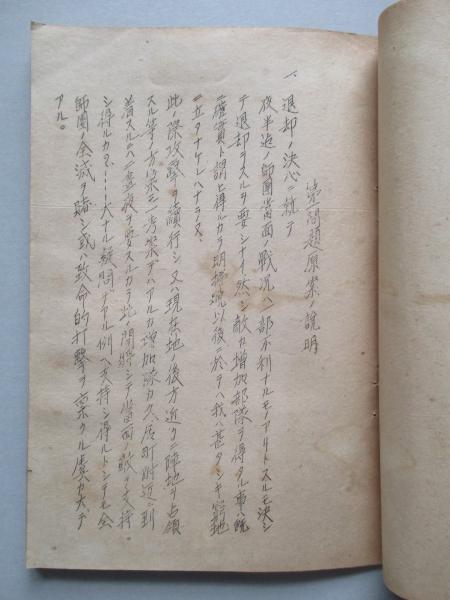 第一問題原案ノ説明
一、退却ノ決心ニ就テ
夜半迄ノ師團當面ノ戦況ハ一部不利ナルモノアリトスルモ決シ
テ退却ヲスルヲ要シナイ然シ敵カ増加部隊ヲ得タル事ハ既
ニ確實ト謂ヒ得ルカラ明拂暁以後ニ於テハ我ハ甚タシキ窮地
ニ立タナケレハナラヌ、
此ノ際攻撃ヲ續行シ又ハ現在地ノ後方近クニ陣地ヲ占領
スル等ノ方案モ一考案テハアルカ増加隊カ久居町附近ニ到
着スルのハ一晝夜ヲ要スルカラ此ノ間果シテ當面ノ敵ヲ支持
シ得ルカ否……大ナル疑問テアル例ヘ支持シ得ルトシテモ全
師團ノ全滅ヲ賭シ或ハ致命的打撃ヲ蒙クル虞カ大テ
アル。